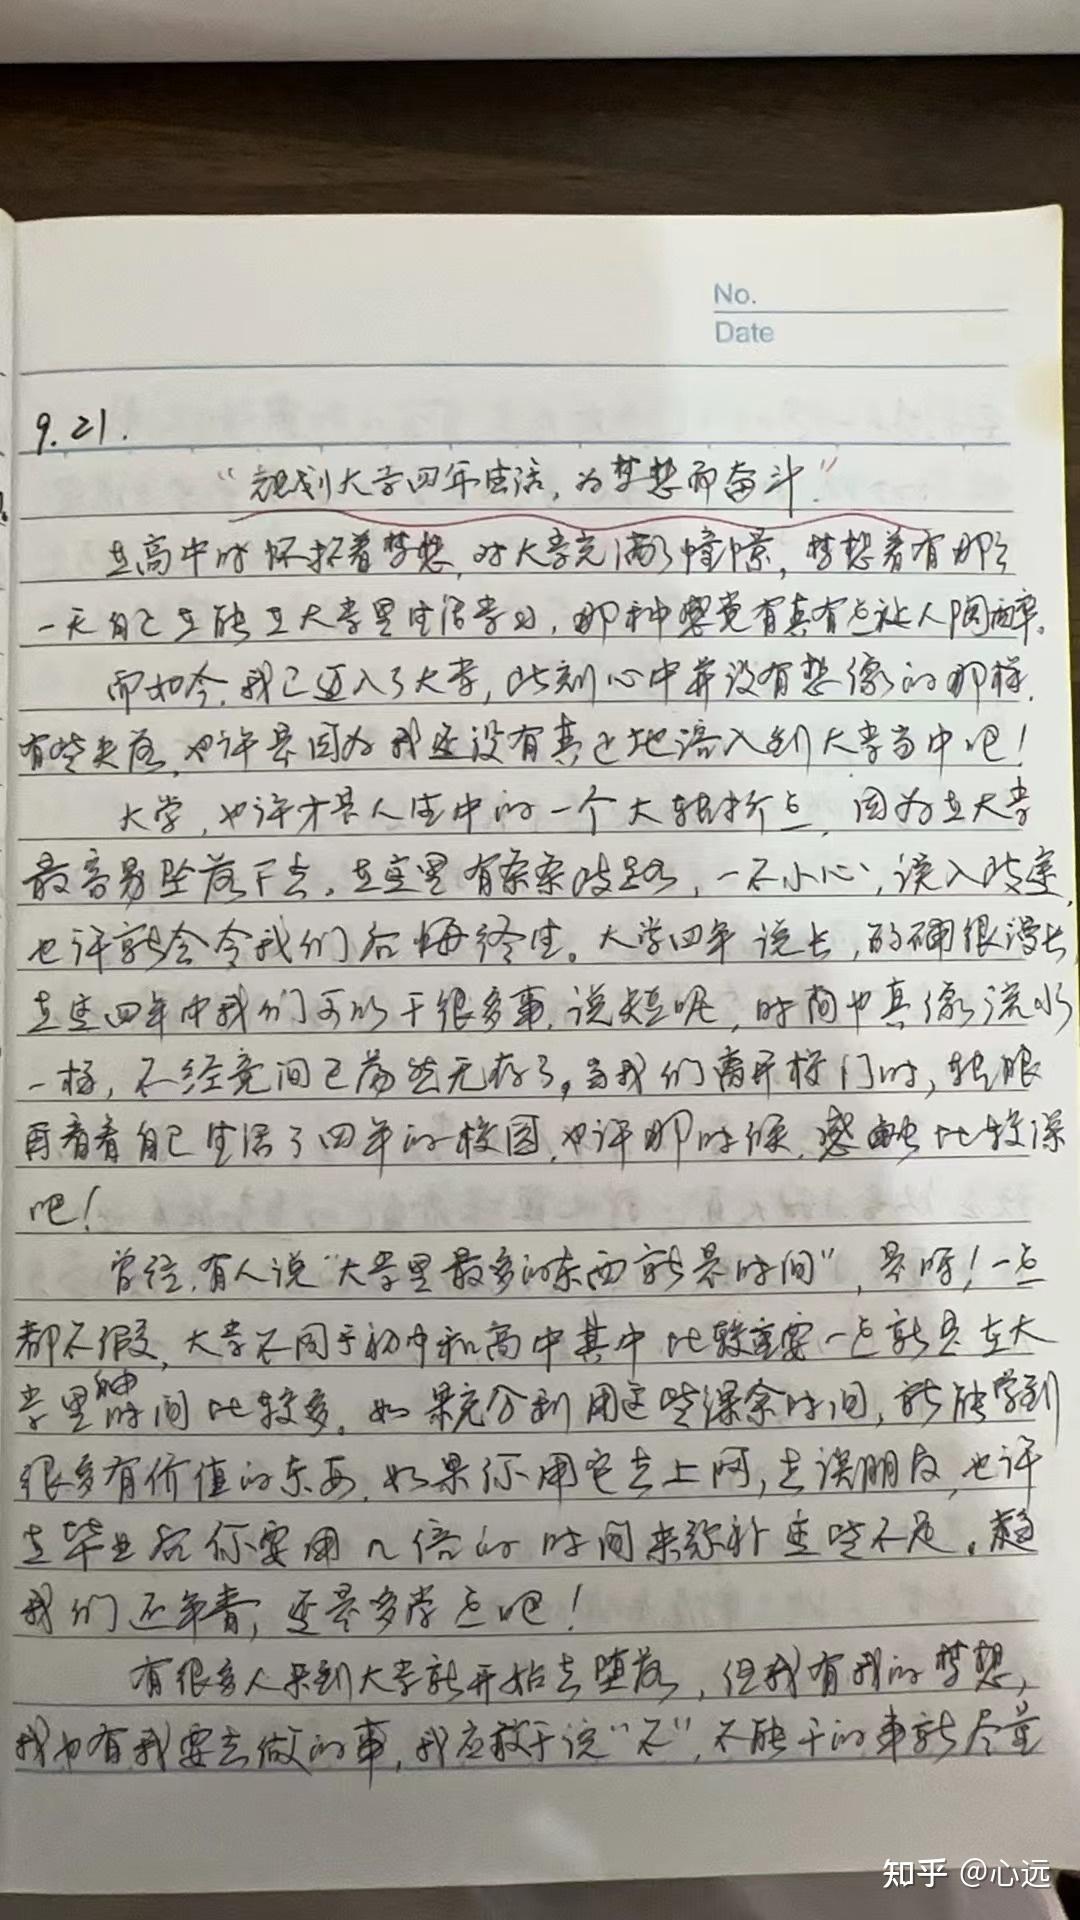 No.
Date
9.21.
“规划大学四年生活，为梦想而奋斗”
在高中时怀抱着梦想，对大学充满了憧憬，梦想着有那么
一天自己在能在大学里生活学习，那种感觉有真有点让人陶醉。
而如今，我已迈入了大学，此刻心中并没有想像的那样，
有些失落，也许是因为我还没有真正地溶入到大学当中吧！
大学，也许才是人生中的一个大转折点，因为在大学
最容易坠落下去，在这里有条条歧路，一不小心，误入歧途，
也许就会令我们后悔终生。大学四年说长，的确很漫长，
在这四年中我们可以干很多事，说短呢，时间也真像流水
一样，不经意间已荡然无存了。当我们离开校门时，转眼
再看看自己生活了四年的校园，也许那时候，感触比较深
吧！
曾经，有人说“大学里最多的东西就是时间”，是呀！一点
都不假，大学不同于初中和高中其中比较重要一点就是在大
学里时间比较多。如果充分利用这些课余时间，就能学到
很多有价值的东西，如果你用它去上网，去谈朋友，也许
在毕业后你要用n倍的时间来弥补这些不足。趁
我们还年青，还是多学点吧！
有很多人来到大学就开始去堕落，但我有我的梦想，
我也有我要去做的事，我应敢于说“不”，不能干的事就尽量
知乎 @心远